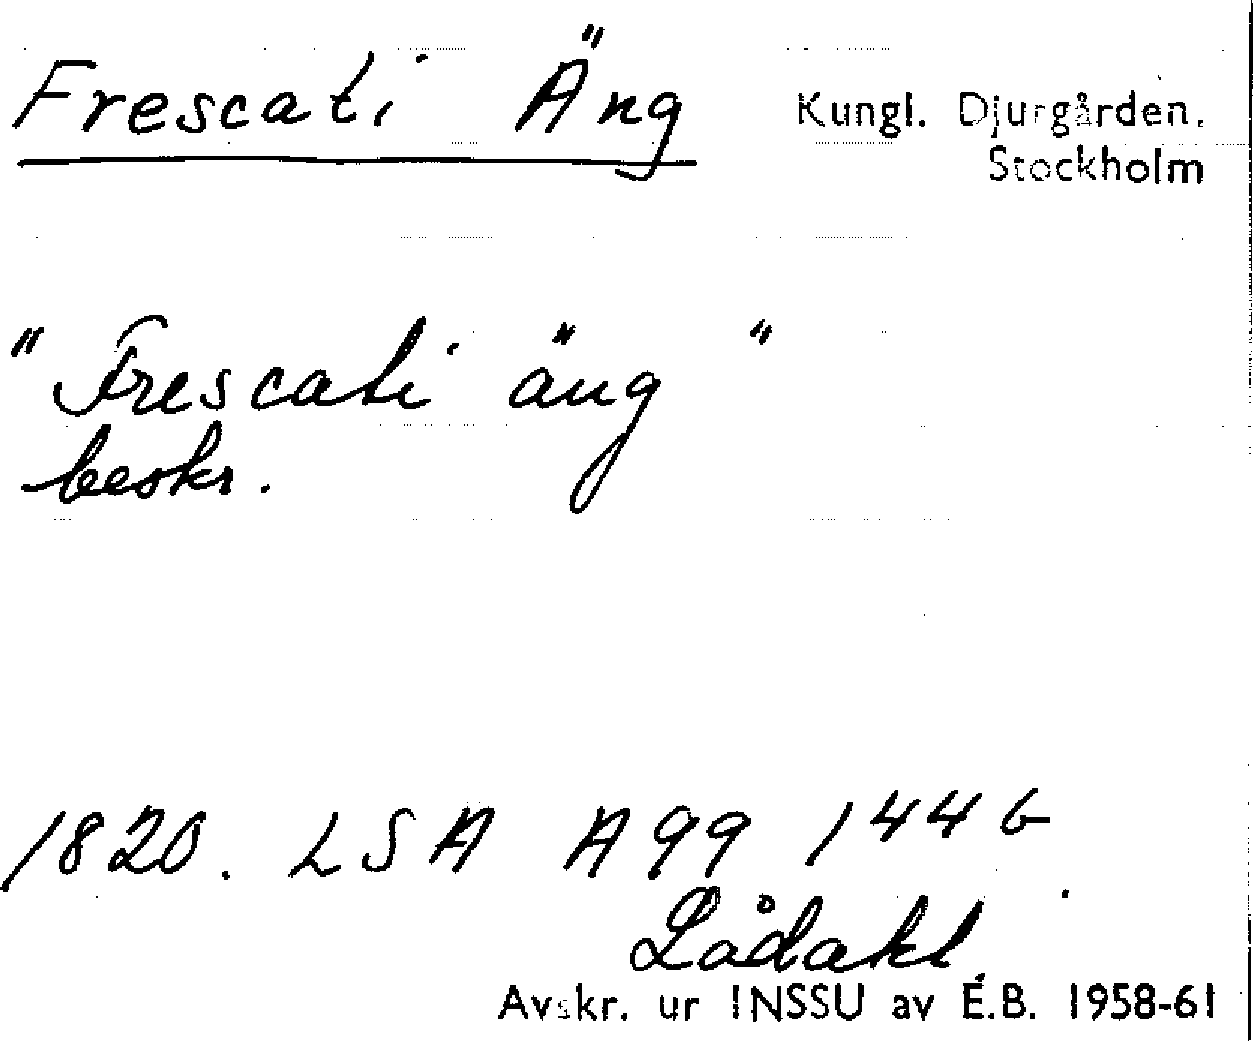 Frescati Äng
Kungl. Djurgården.
Stockholm
"Frescati äng"
beskr.
1820. LSA A99 144 b
Lådakt.
Avskr. ur INSSU av E.B. 1958-61